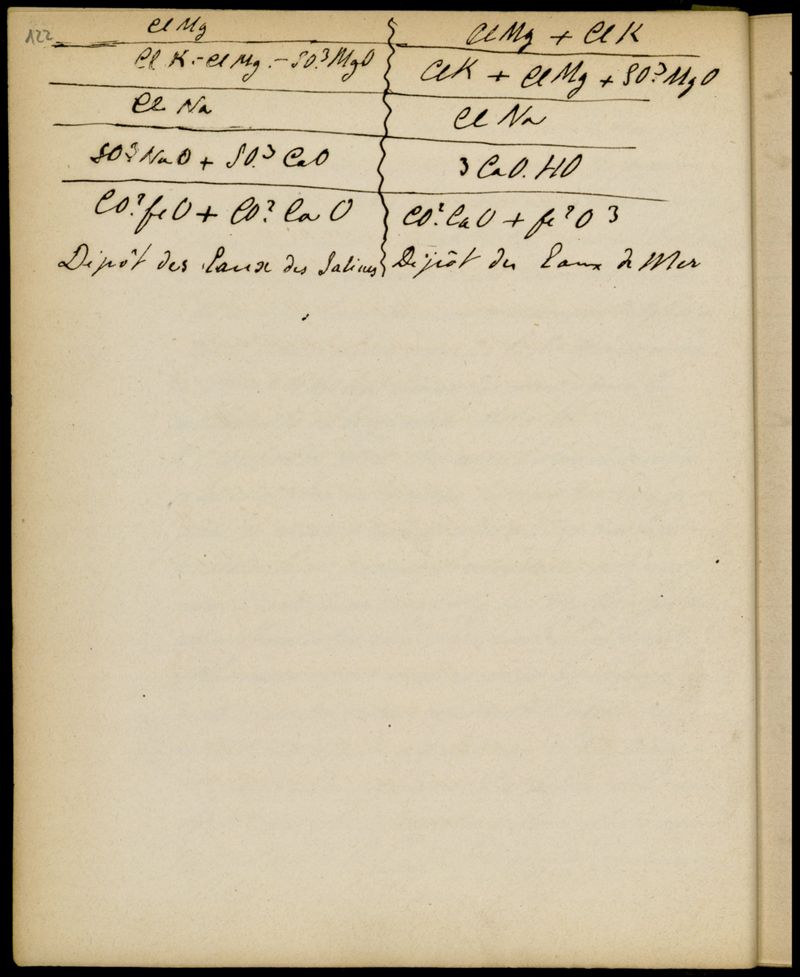 122
Cl Mg
Cl Mg + Cl K
Cl K. - Cl Mg. - SO.³ MgO
Cl K + Cl Mg + SO.³ MgO
Cl Na
Cl Na
SO³ NaO + SO.³ CaO
3 CaO. HO
CO.² feO + CO.² CaO
CO.² CaO + fe²O³
Dépôt des Eaux des Salines
Dépôt des Eaux de Mer